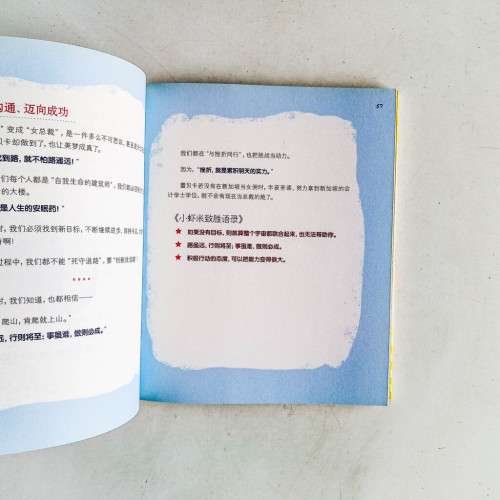 沟通、迈向成功
”变成“女总裁”，是一件多么不可思议、甚至是不可
贝卡却做到了，也让美梦成真了。
找到路，就不怕路遥远！”
们每个人都是“自我生命的建筑师”，我们都必须
的大楼。
是人生的安眠药！”
时，我们必须找到新目标，不断继续进步，
啊！
过程中，我们都不能“死守退路”，要“创新找活路”！
★★★★
时，我们知道，也都相信——
爬山，肯爬就上山。”
远，行则将至；事虽难，做则必成。”
57
我们都在“与挫折同行”，也把挑战当动力。
因为，“挫折，就是累积明天的实力。”
蕾贝卡若没有在新加坡当女佣时，半夜苦读、努力拿到新加坡的会
计学士学位，就不会有现在当总裁的路了。
《小虾米致胜语录》
★ 如果没有目标，则就算整个宇宙都联合起来，也无法帮助你。
★ 路虽远，行则将至；事虽难，做则必成。
★ 积极行动的态度，可以把能力变得很大。